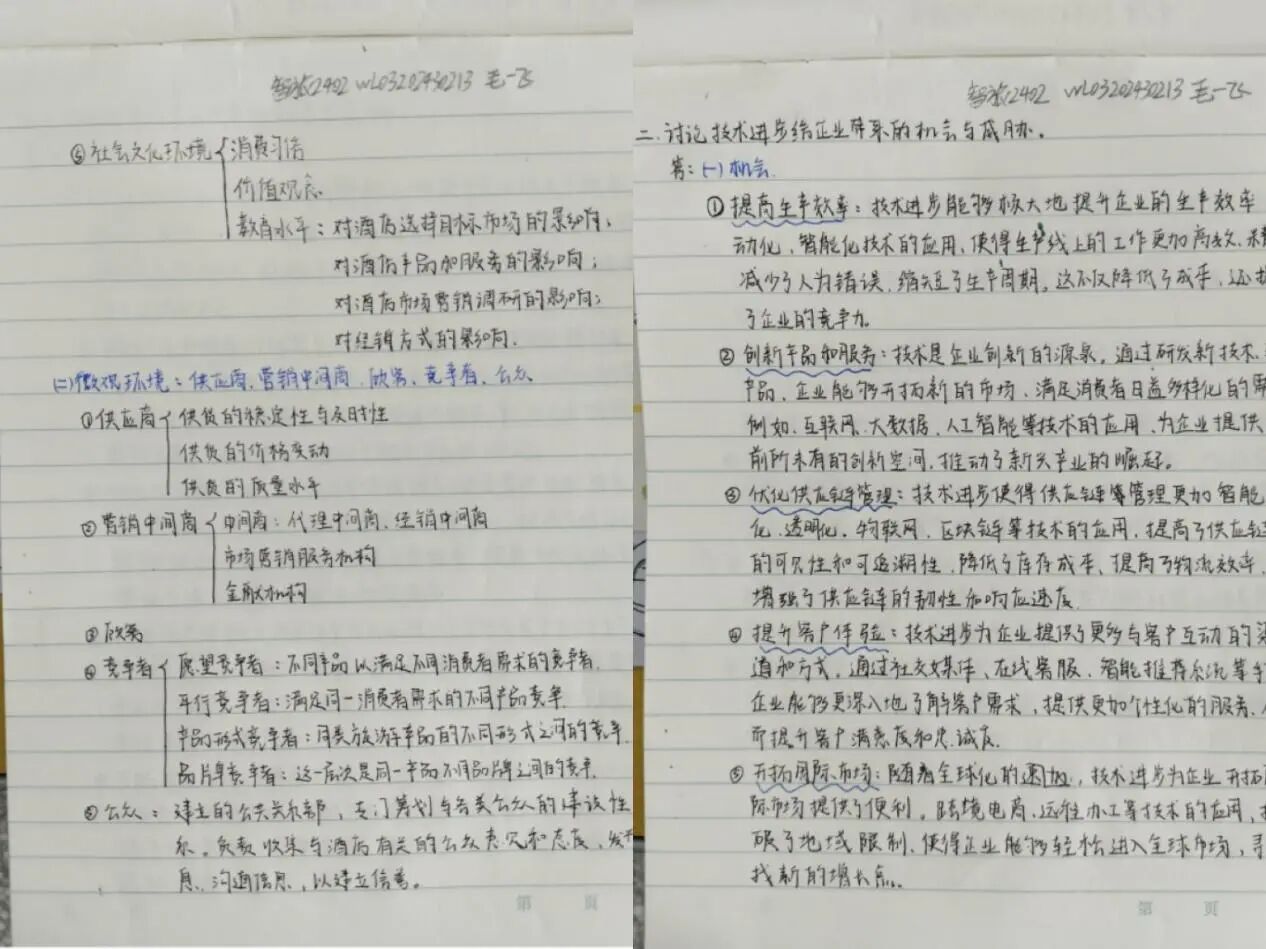 智旅2402 WL03202430213 毛一飞
⑤社会文化环境 消费习俗
价值观念
教育水平：对酒店选择目标市场的影响；
对酒店产品和服务的影响；
对酒店市场营销调研的影响；
对经销方式的影响.
(二)微观环境：供应商、营销中间商、顾客、竞争者、公众
①供应商 供货的稳定性与及时性
供货的价格变动
供货的质量水平
②营销中间商 中间商：代理中间商、经销中间商
市场营销服务机构
金融机构
③顾客
④竞争者 愿望竞争者：不同产品以满足不同消费者需求的竞争者.
平行竞争者：满足同一消费者需求的不同产品竞争.
产品形式竞争者：同类旅游产品的不同形式之间的竞争.
品牌竞争者：这一层次是同一产品不同品牌之间的竞争.
⑤公众：建立的公共关系部，专门筹划与各类公众的建设性
系。负责收集与酒店有关的公众意见和态度、发
息、沟通信息，以建立信誉。
第 页
智旅2402 WL03202430213 毛一飞
二、讨论技术进步给企业带来的机会与威胁。
答：(一)机会.
①提高生产效率：技术进步能够极大地提升企业的生产效率
动化、智能化技术的应用，使得生产线上的工作更加高效、
减少了人为错误，缩短了生产周期。这不仅降低了成本，还
了企业的竞争力。
②创新产品和服务：技术是企业创新的源泉。通过研发新技术、
产品，企业能够开拓新的市场、满足消费者日益多样化的需
例如，互联网、大数据、人工智能等技术的应用，为企业提供
前所未有的创新空间，推动了新兴产业的崛起。
③优化供应链管理：技术进步使得供应链等管理更加智能
化、透明化。物联网、区块链等技术的应用，提高了供应链
的可见性和可追溯性，降低了库存成本、提高了物流效率，
增强了供应链的韧性和响应速度.
④提升客户体验：技术进步为企业提供了更多与客户互动的渠
道和方式。通过社交媒体、在线客服、智能推荐系统等手
企业能够更深入地了解客户需求，提供更加个性化的服务、
而提升客户满意度和忠诚度.
⑤开拓国际市场：随着全球化的加，技术进步为企业开拓
际市场提供了便利。跨境电商、远程办工等技术的应用，
破了地域限制，使得企业能够轻松进入全球市场，寻
找新的增长点。
第 页